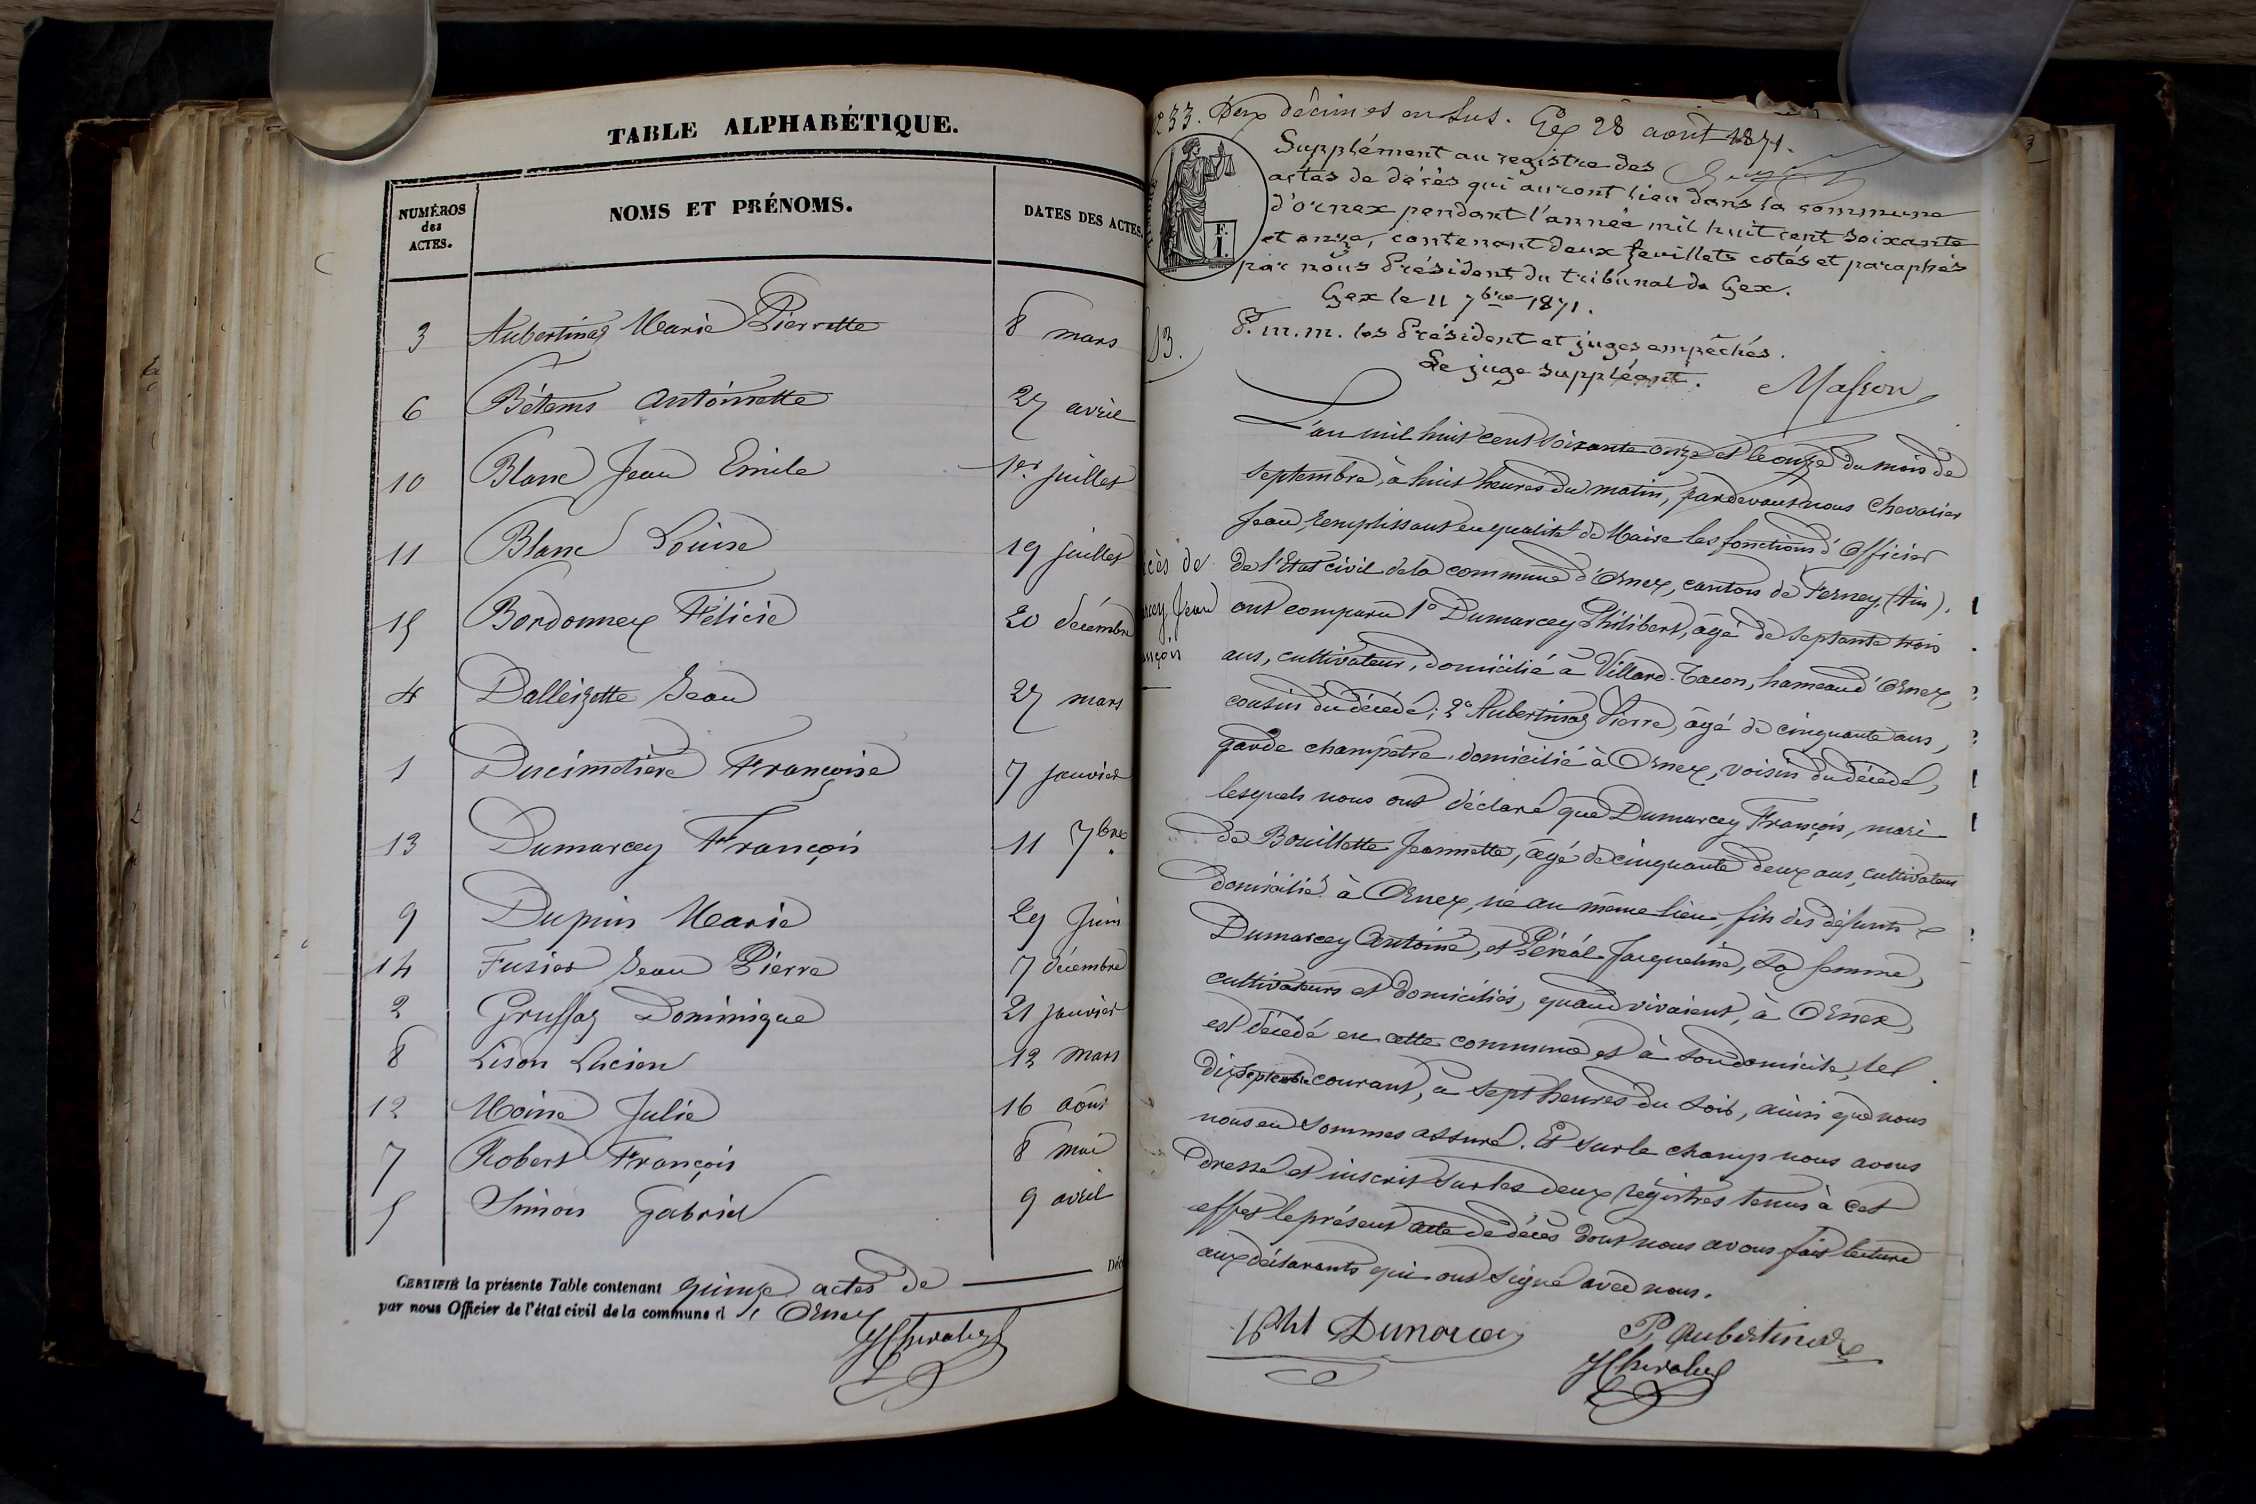 TABLE ALPHABÉTIQUE.
NUMÉROS des ACTES.
NOMS ET PRÉNOMS.
DATES DES ACTES.
3 Aubertinaz Marie Pierrette 8 mars
6 Bétems Antoinette 27 avril
10 Blanc Jean Emile 1er juillet
11 Blanc Louise 19 juillet
15 Bordonnex Félicie 20 décembre
4 Dalleizette Jean 27 mars
1 Ducimetière Françoise 7 janvier
13 Dumarcey François 11 7bre
9 Dupuis Marie 29 Juin
14 Fusier Jean Pierre 7 décembre
2 Gruffaz Dominique 21 janvier
8 Lison Lucien 12 mars
12 Moine Julie 16 Août
7 Robert François 8 mai
5 Simon Gabriel 9 avril
CERTIFIÉ la présente Table contenant quinze actes de Déc
par nous Officier de l'état civil de la commune d' Ornex
JChevalier
233. Deux décimes en sus. Gex 28 août 1871.
Supplément au registre des
actes de décès qui auront lieu dans la commune
d'ornex pendant l'année mil huit cent soixante
et onze, contenant deux feuillets cotés et paraphés
par nous Président du tribunal de Gex.
Gex le 11 7bre 1871.
P. m.m. les Président et juges empêchés.
Le juge suppléant.
Masson
F.
1.
13.
cès de
rcey Jean
nçois
L'an mil huit cent soixante onze et le onze du mois de
septembre, à huit heures du matin, pardevant nous Chevalier
Jean, remplissant en qualité de Maire les fonctions d'officier
de l'Etat civil de la commune d'Ornex, canton de Ferney, (Ain).
ont comparu 1° Dumarcey Philibert, âgé de septante trois
ans, cultivateur, domicilié à Villard-Tacon, hameau d'Ornex,
cousin du décédé; 2° Aubertinaz Pierre, âgé de cinquante ans,
garde champêtre, domicilié à Ornex, voisin du décédé,
lesquels nous ont déclaré que Dumarcey François, mari
de Bouillette Jeannette, âgé de cinquante deux ans, cultivateur
domicilié à Ornex, né au même lieu, fils des défunts
Dumarcey Antoine, et Péréal Jacqueline, sa femme,
cultivateurs et domiciliés, quand vivaient, à Ornex,
est décédé en cette commune et à son domicile, le
dix septembre courant, à sept heures du soir, ainsi que nous
nous en sommes assuré. Et sur le champ nous avons
dressé et inscrit sur les deux régistres tenus à cet
effet le présent acte de décès dont nous avons fait lecture
aux déclarants qui ont signé avec nous.
Phbt Dumarcey
P. Aubertinaz
JChevalier